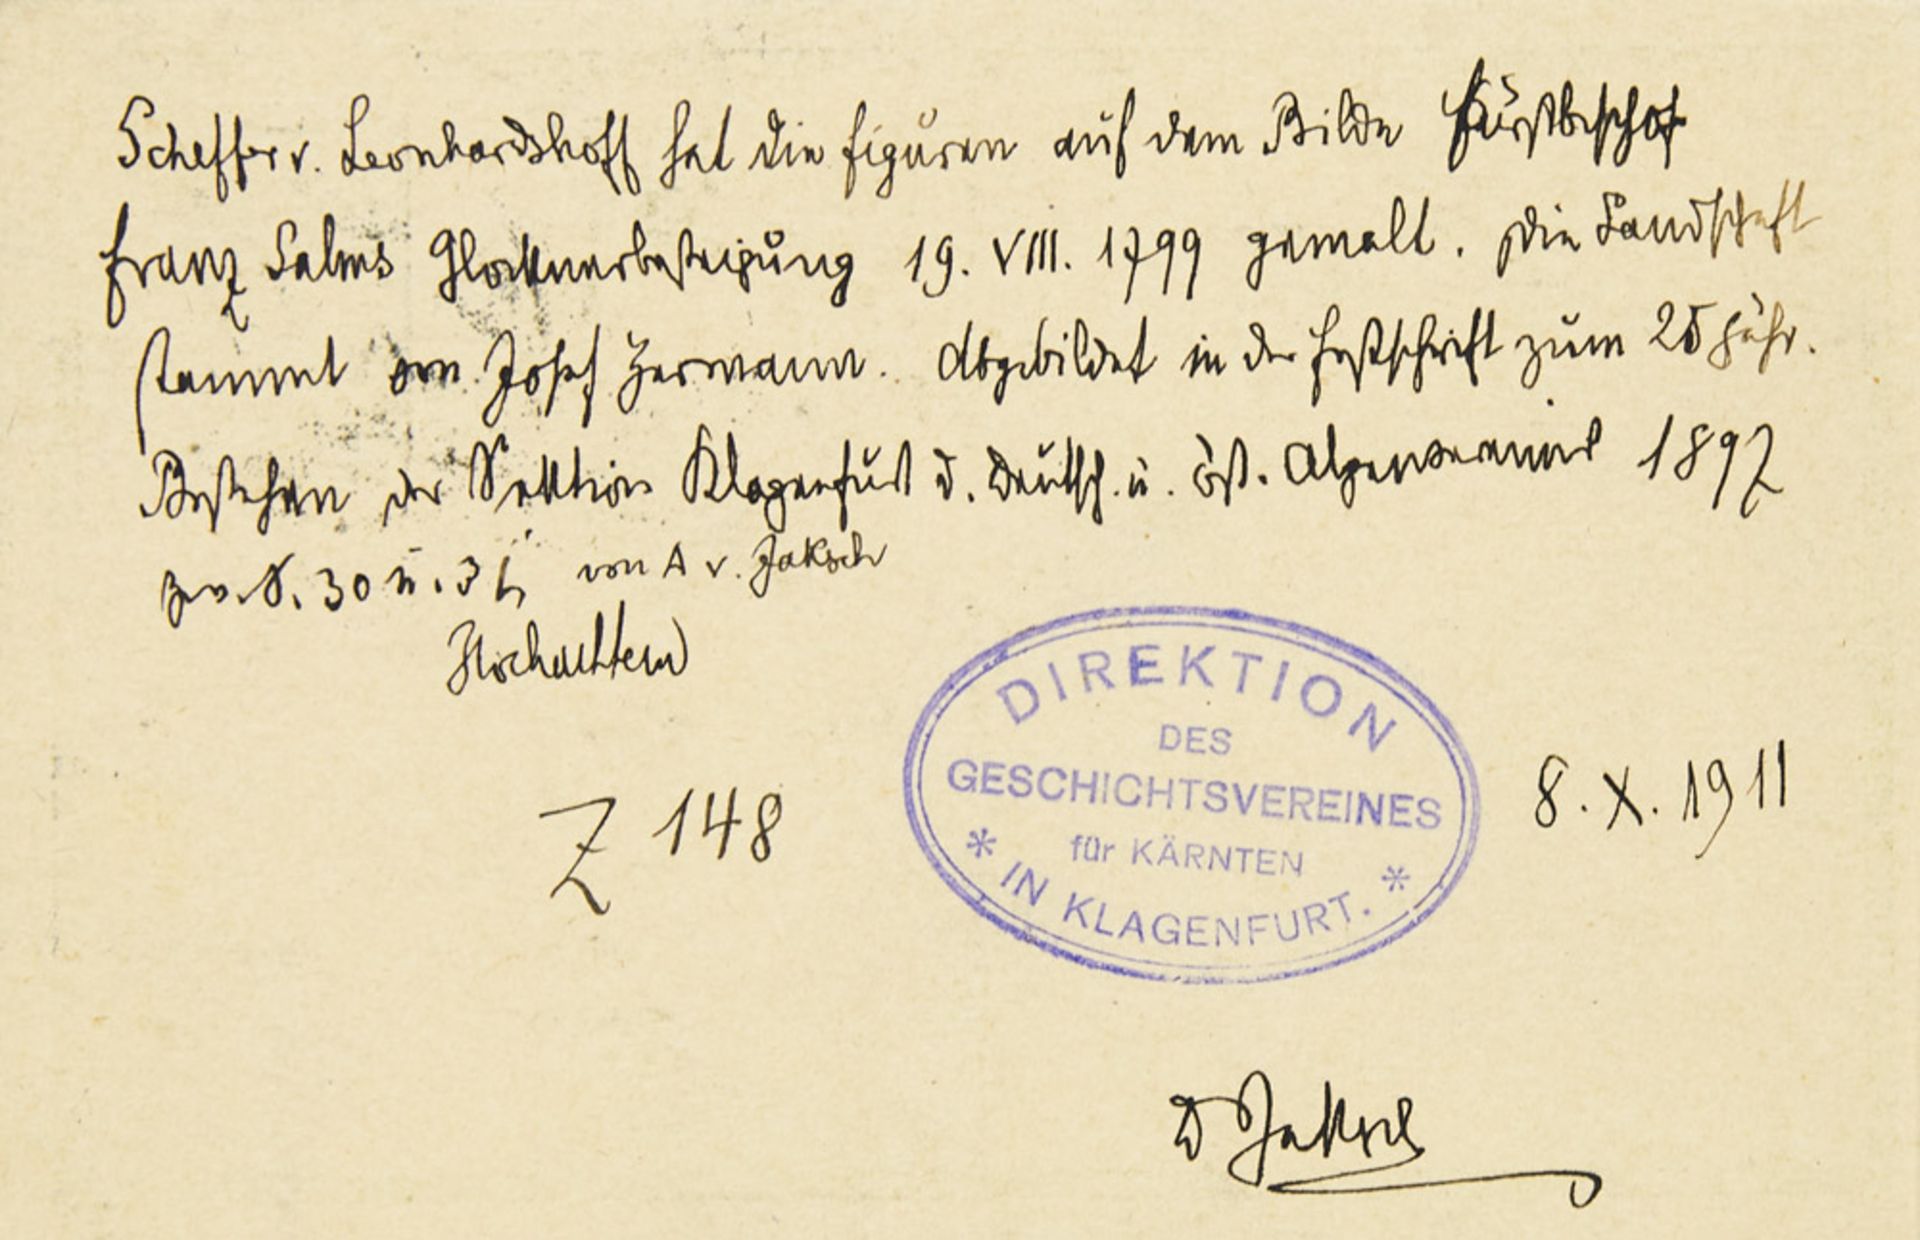 Scheffer v. Leonhardshoff hat die Figuren auf dem Bilde Fürstbischof
Franz Salms Glocknerbesteigung 19. VIII. 1799 gemalt. Die Landschaft
stammt von Josef Hermann. Abgebildet in der Festschrift zum 25jähr.
Bestehen der Sektion Klagenfurt d. Deutsch. u. öst. Alpenvereins 1897
zw. S. 30 u. 31, von A v. Jaksch
Hochachtend
DIREKTION
DES
GESCHICHTSVEREINES
für KÄRNTEN
* IN KLAGENFURT. *
Z 148
8. X. 1911
D Jaksch